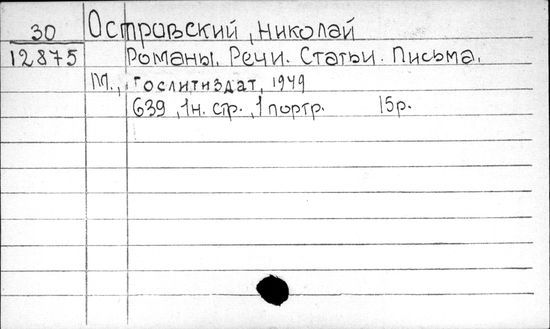 30 Островский, Николай
12875 Романы. Речи. Статьи. Письма.
М., Гослитиздат, 1949
639, 1н. стр., 1 портр. 15р.